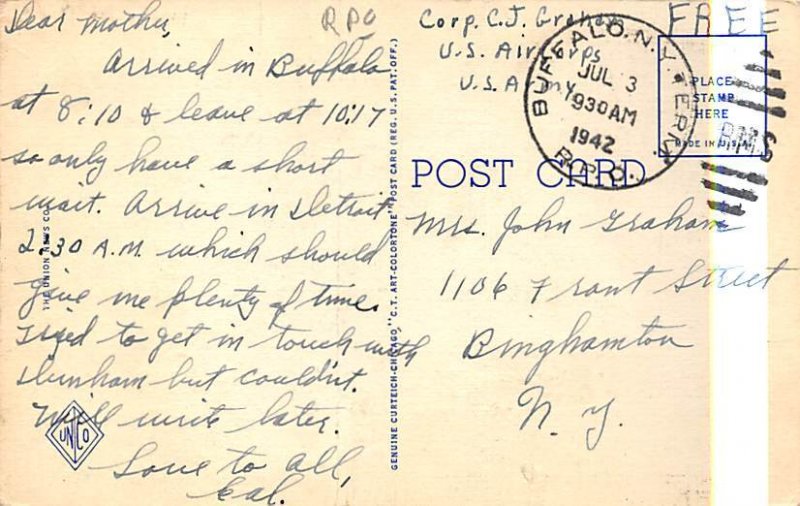 Dear Mother,
Arrived in Buffalo
at 8:10 & leave at 10:17
so only have a short
wait. Arrive in Detroit
2:30 A.M. which should
give me plenty of time.
Tried to get in touch with
Dunham but couldn't.
Will write later.
Love to all,
Cal.
UNCO
THE UNION NEWS CO
GENUINE CURTEICH-CHICAGO "C.T. ART-COLORTONE" POST CARD (REG. U.S. PAT. OFF.)
RPO
Corp. C.J. Graham
U.S. Air Corps
U.S. Army
FREE
BUFFALO, N.Y. TERM.
JUL 3
930 AM
1942
R.P.O.
PLACE
STAMP
HERE
MADE IN U.S.A.
POST CARD
Mrs. John Graham
1106 Front Street
Binghamton
N.Y.